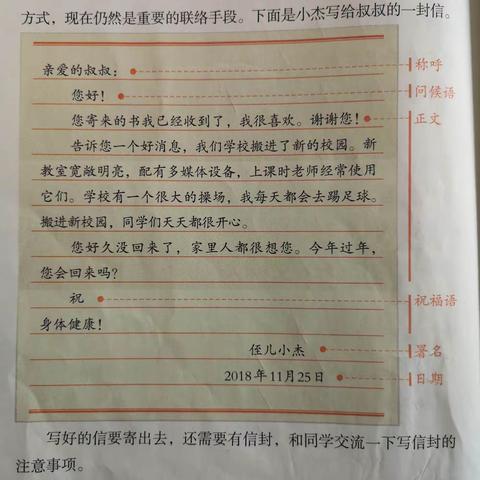 方式，现在仍然是重要的联络手段。下面是小杰写给叔叔的一封信。
亲爱的叔叔： 称呼
您好！ 问候语
您寄来的书我已经收到了，我很喜欢。谢谢您！ 正文
告诉您一个好消息，我们学校搬进了新的校园。新
教室宽敞明亮，配有多媒体设备，上课时老师经常使用
它们。学校有一个很大的操场，我每天都会去踢足球。
搬进新校园，同学们天天都很开心。
您好久没回来了，家里人都很想您。今年过年，
您会回来吗？
祝 祝福语
身体健康！
侄儿小杰 署名
2018年11月25日 日期
写好的信要寄出去，还需要有信封，和同学交流一下写信封的
注意事项。